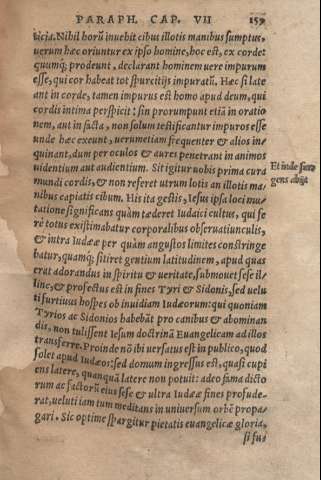 PARAPH. CAP. VII 159
bicia. Nihil horũ inuehit cibus illotis manibus sumptus,
uerum hæc oriuntur ex ipso homine, hoc est, ex corde:
quumq́; prodeunt, declarant hominem uere impurum
esse, qui cor habeat tot spurcitijs impuratũ. Hæc si late
ant in corde, tamen impurus est homo apud deum, qui
cordis intima perspicit: sin prorumpunt etiã in oratio
nem, aut in facta, non solum testificantur impuros esse
unde hæc exeunt, uerumetiam frequenter & alios in=
quinant, dum per oculos & aures penetrant in animos
uidentium aut audientium. Sit igitur uobis prima cura
mundi cordis, & non referet utrum lotis an illotis ma=
nibus capiatis cibum. His ita gestis, Iesus ipsa loci mu=
tatione significans quàm tæderet Iudaici cultus, qui fe
rè totus existimabatur corporalibus obseruatiunculis,
& intra Iudææ per quàm angustos limites constringe
batur, quamq́; sitiret gentium latitudinem, apud quas
erat adorandus in spiritu & ueritate, submouet sese il=
linc, & profectus est in fines Tyri & Sidonis, sed uelu
ti furtiuus hospes ob inuidiam Iudæorum: qui quoniam
Tyrios ac Sidonios habebãt pro canibus & abominan
dis, non tulissent Iesum doctrinã Euangelicam ad illos
transferre. Proinde nõ ibi uersatus est in publico, quod
solet apud Iudæos: sed domum ingressus est, quasi cupi
ens latere, quanquã latere non potuit: adeo fama dicto
rum ac factorũ eius sese & ultra Iudææ fines profude=
rat, ueluti iam tum meditans in uniuersum orbẽ propa=
gari. Sic optime spargitur pietatis euangelicæ gloria,
si fus
Et inde sur=
gens abijt